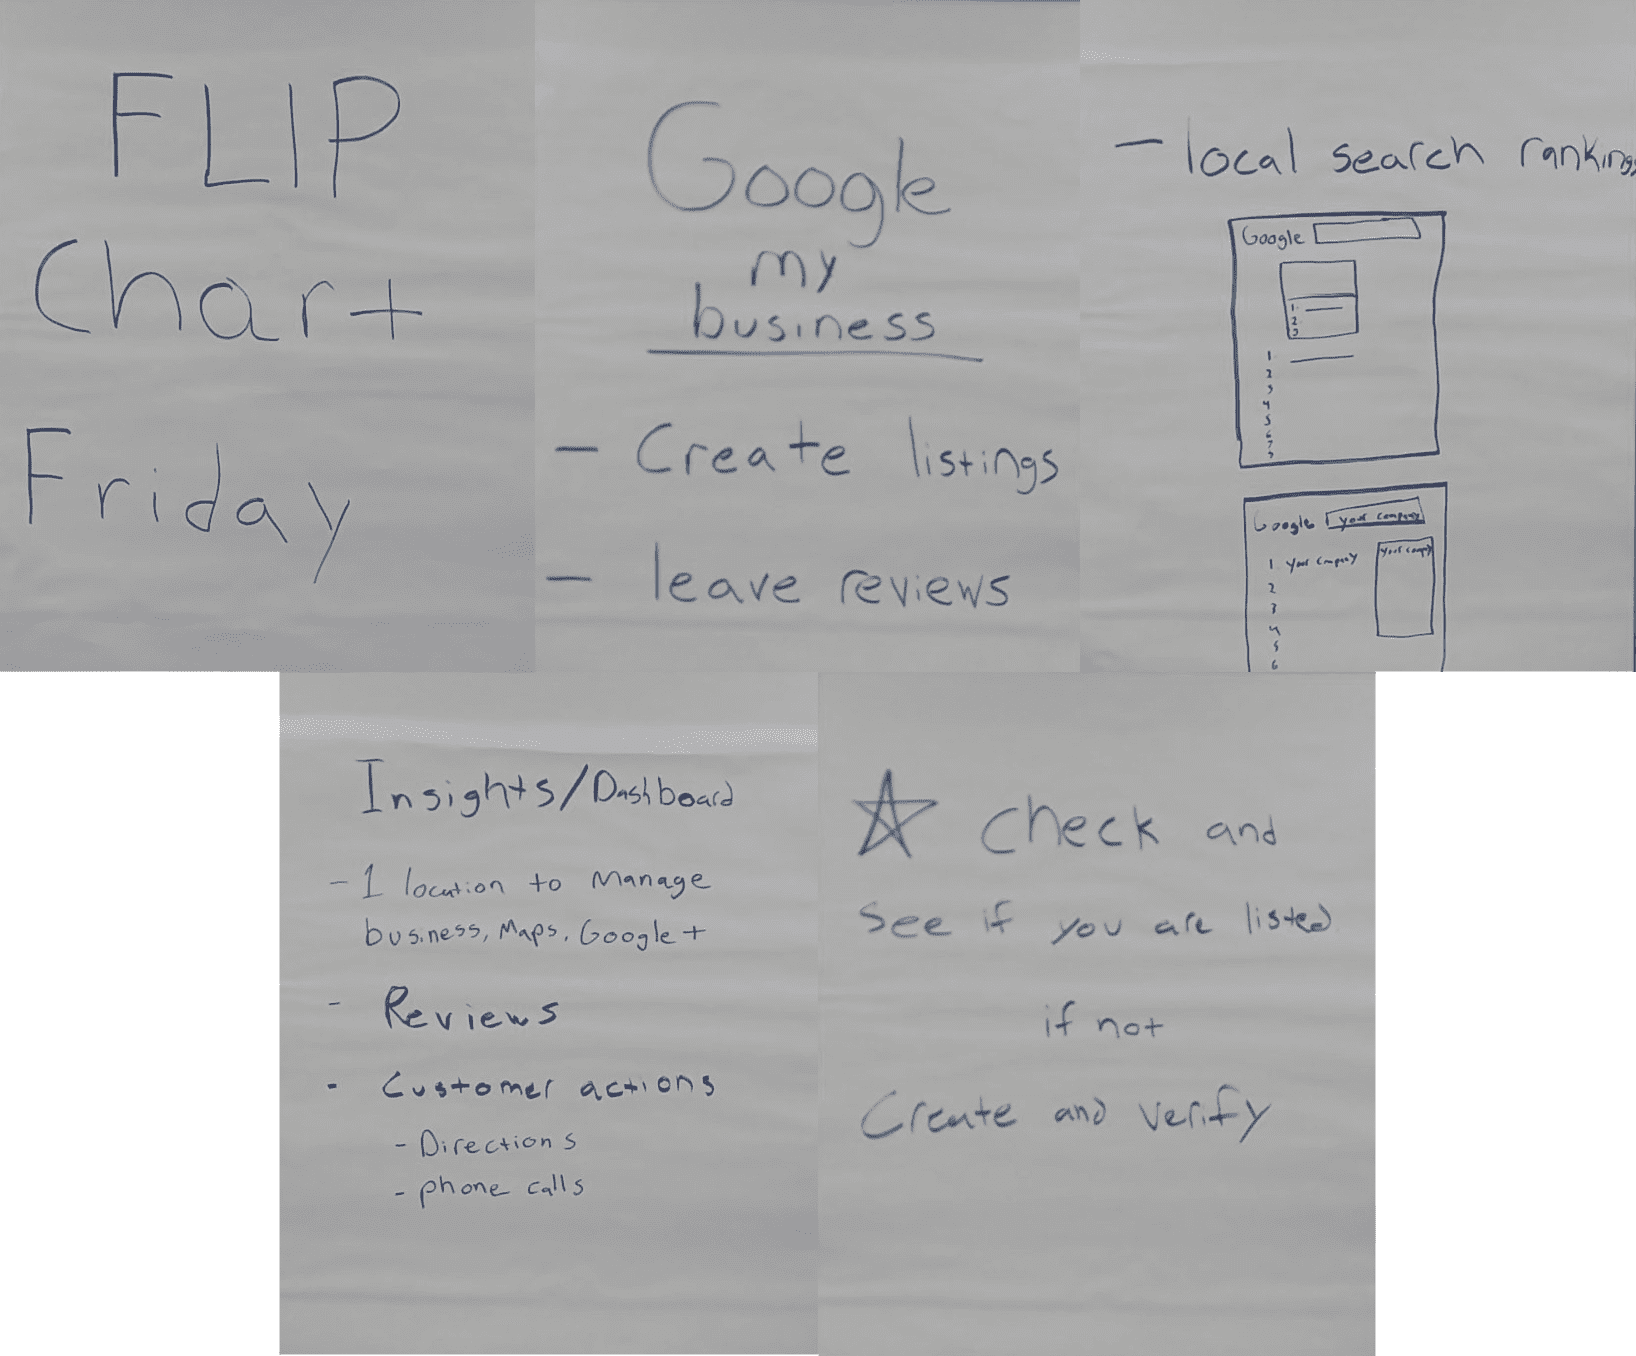 FLIP
Chart
Friday
Google
my
business
- Create listings
- leave reviews
- local search rankings
Google
1
2
3
1
2
3
4
5
6
7
Google your company
1 your company your company
2
3
4
5
6
Insights/Dashboard
- 1 location to manage
business, Maps, Google+
- Reviews
- Customer actions
- Directions
- phone calls
☆ check and
see if you are listed
if not
Create and verify